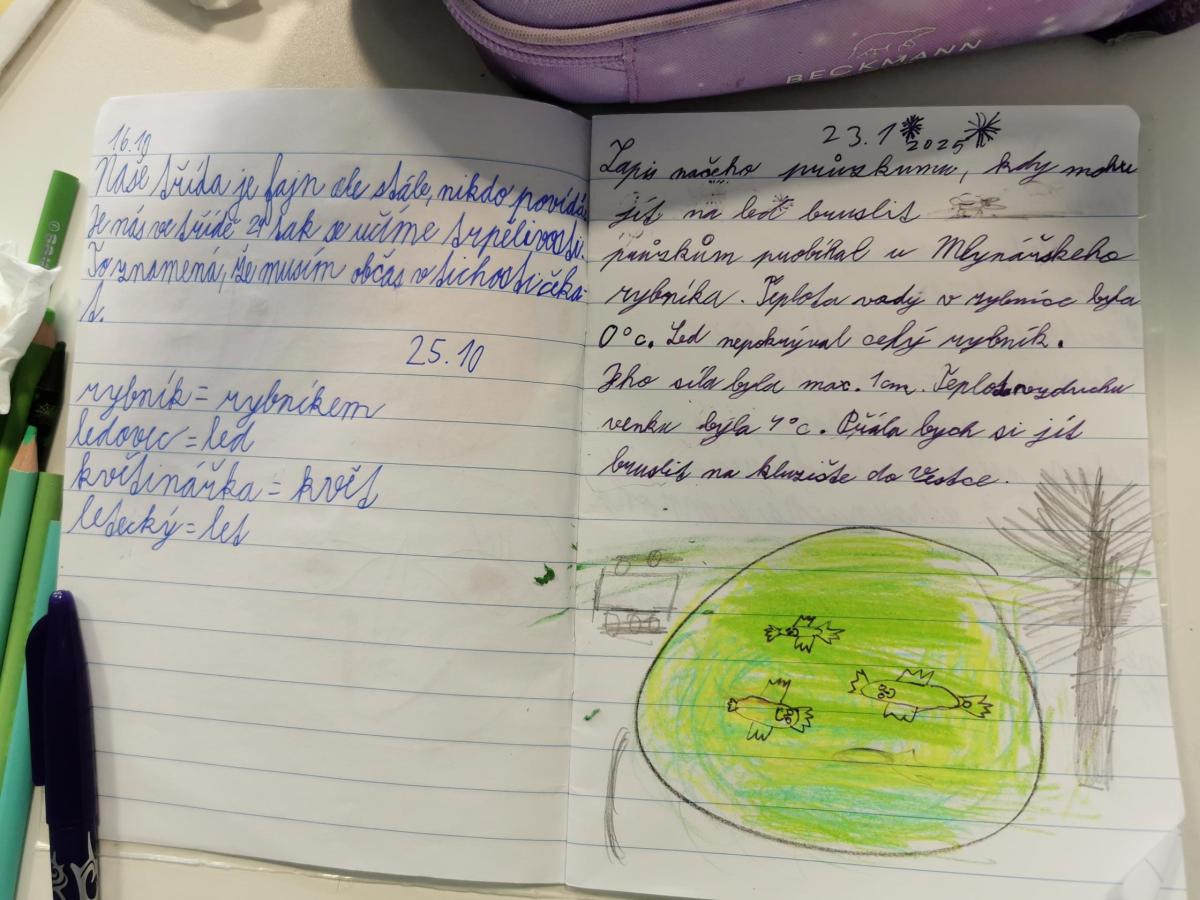 BECKMANN
16.10
Naše třída je fajn ale stále, nikdo povídá
Je nás ve třídě 29 tak se učíme trpělivosti.
To znamená, že musím občas v tichosti čeka-
t.
25.10
rybník = rybníkem
ledovec = led
květinářka = květ
letecký = let
23.1 2025
Zapis našeho průzkumu, kdy mohu
jít na led bruslit
průzkům probíhal u Mlynářskeho
rybníka. Teplota vody v rybníce byla
0°c. Led nepokrýval celý rybník.
Jeho síla byla max. 1cm. Teplota vzduchu
venku byla 7°c. Přála bych si jít
bruslit na kluziště do Vestce.